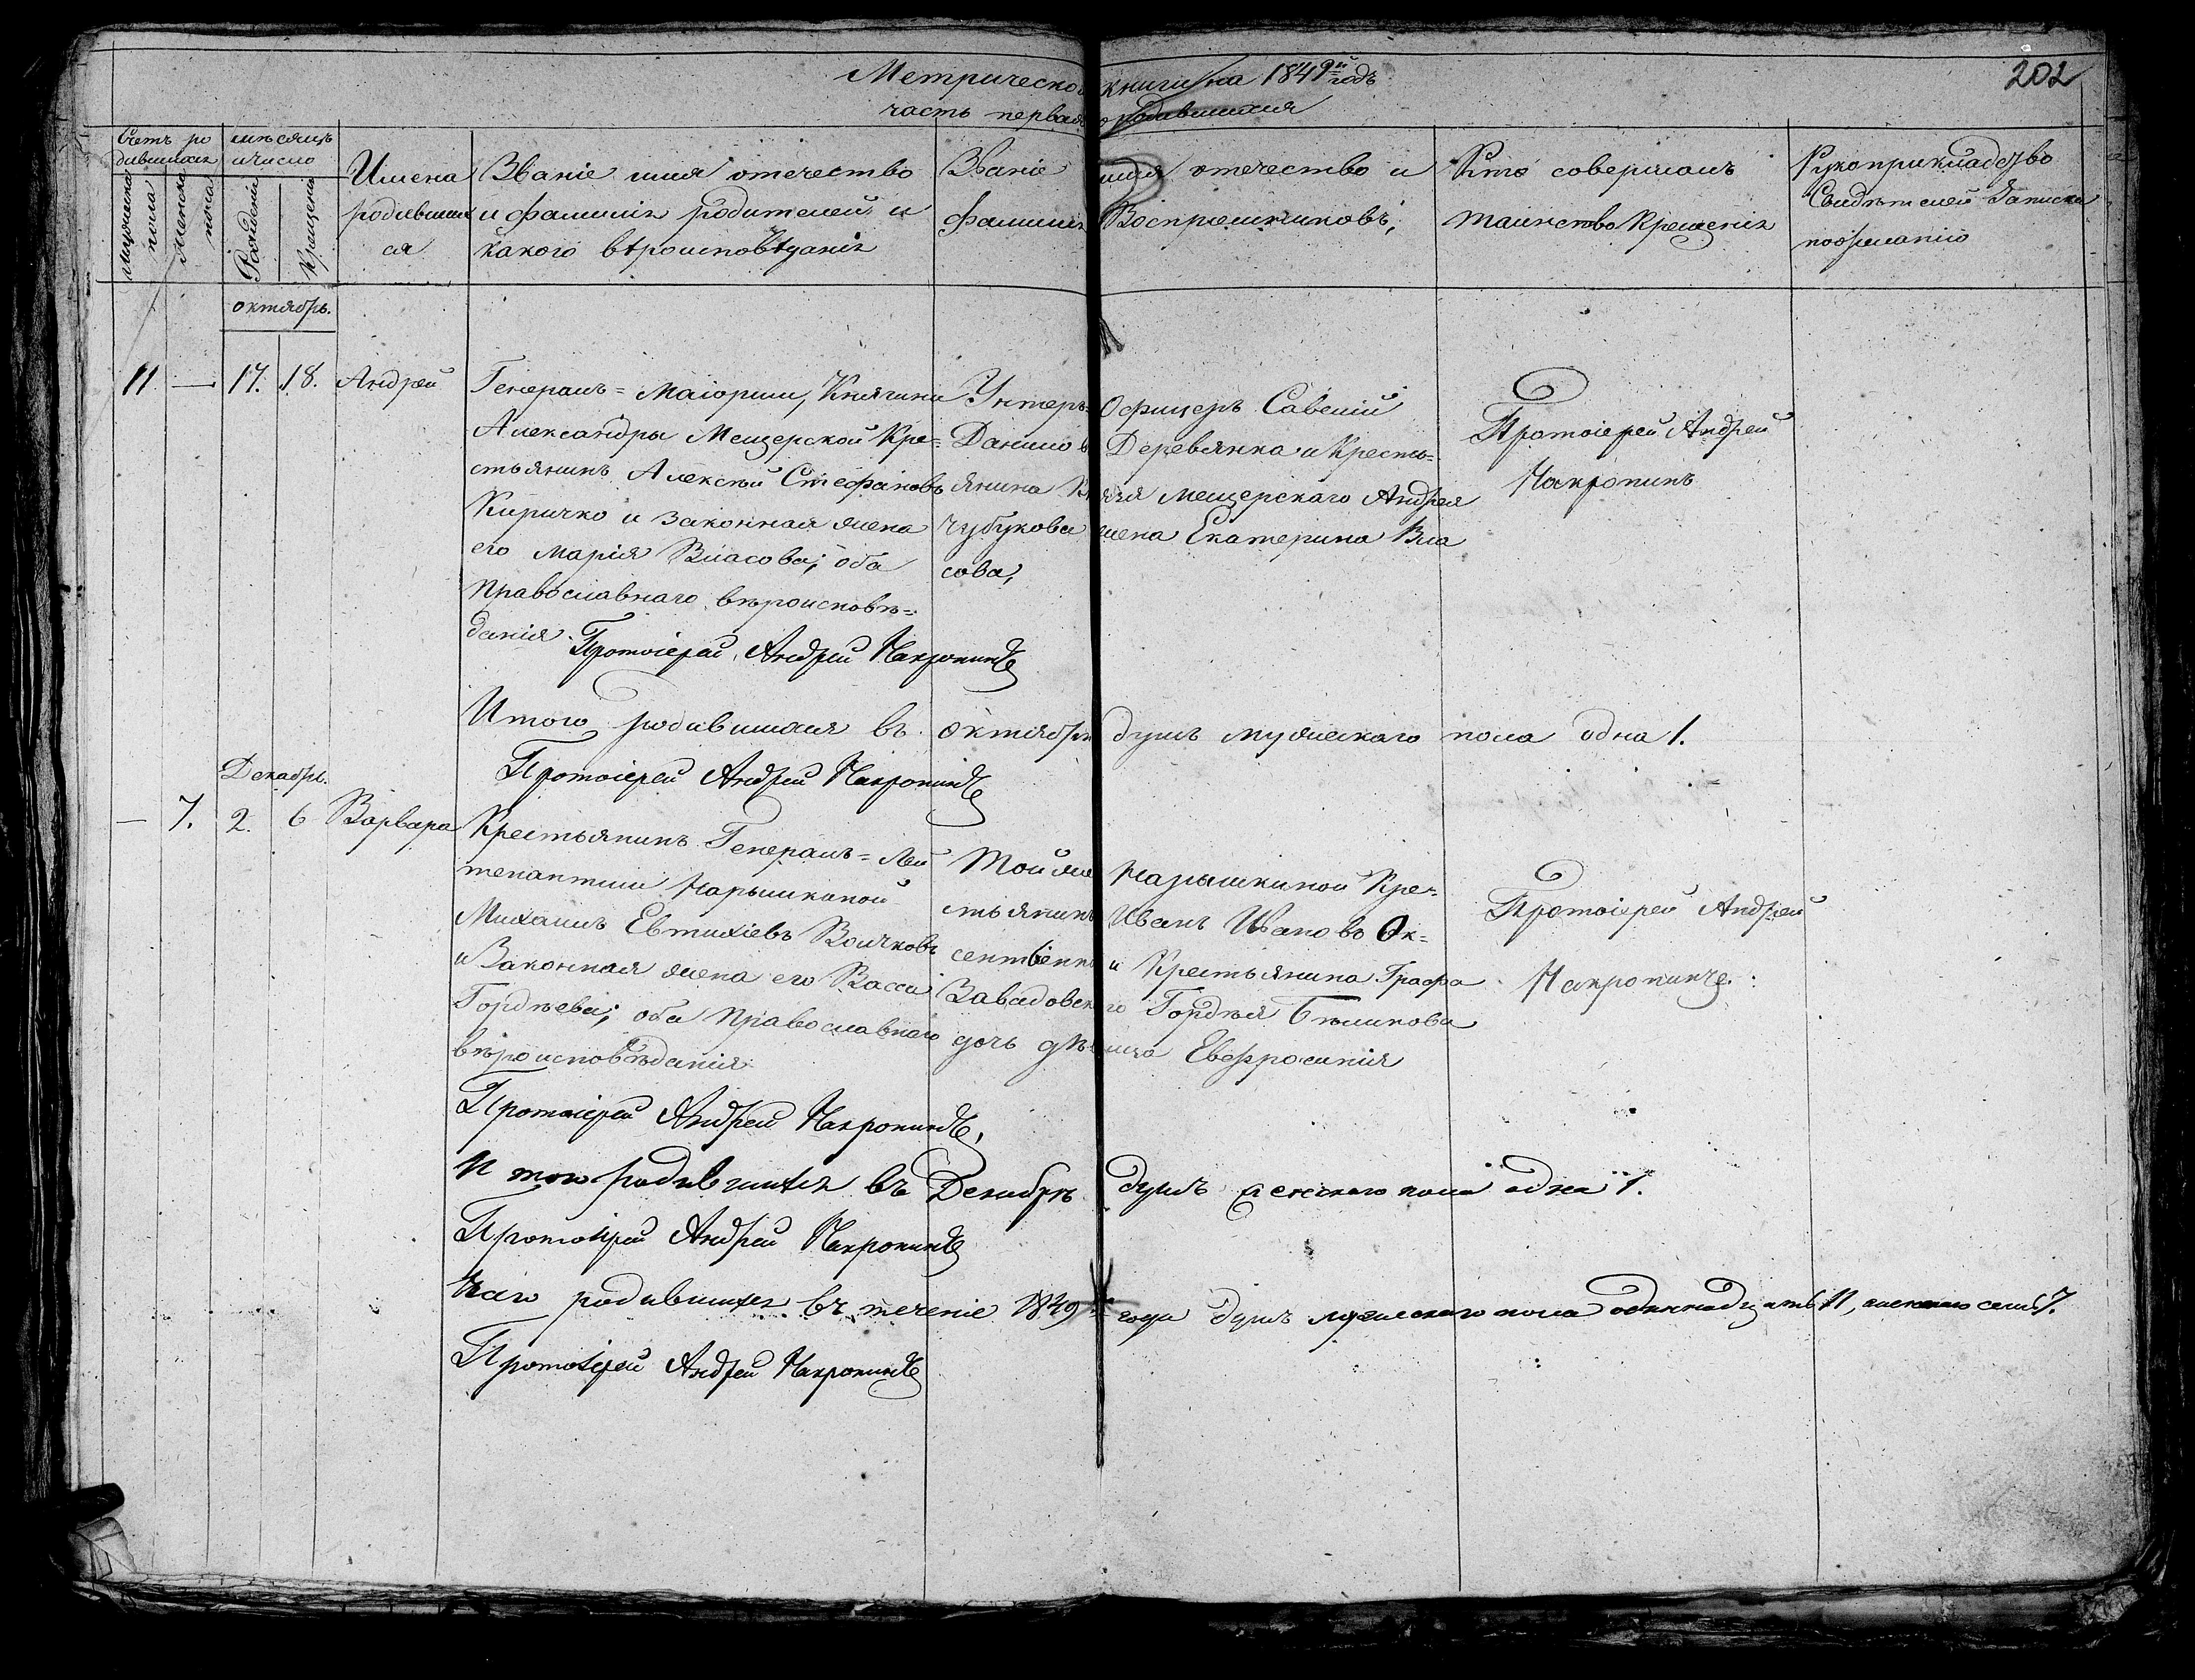 202
Метрической книги на 1849й годъ
часть первая о родившихся
Счетъ ро
дившихся
мужеска
пола
женска
пола
мѣсяцъ
и число
Рожденія
Крещенія
Имена
родивших
ся
Званіе имя отечество
и фамилія родителей и
какого вѣроисповѣданія
Званіе имя отечество и
фамилія Воспрiемниковъ,
Кто совершалъ
таинство Крещенія
Рукоприкладство
Свидѣтелей Записки
по желанію
октябрь.
11 — 17. 18. Андрей
Генералъ-Маіорши, Княгини
Александры Мещерской Кре=
стьянинъ Алексѣй Стефановъ
Киричко и законная жена
его Марія Власова; оба
Православнаго вѣроисповѣ=
данія.
Унтеръ-Офицеръ Савелій
Данило въ Деревянка и Кресть=
янина Князя Мещерскаго Андрея
Чубукова жена Екатерина Вла
сова,
Протоіерей Андрей
Протоіерей Андрей
Итого родившихся въ октябрѣ душъ мужескаго пола одна 1.
Протоіерей Андрей
Декабрь.
— 7. 2. 6 Варвара
Крестьянинъ Генералъ-Лей
тенантши Нарышкиной
Михаилъ Евтихіевъ Волчковъ
и Законная жена его Васса
Гордѣева; оба Православнаго
вѣроисповѣданія.
Той же Нарышкиной Кре=
стьянинъ Иванъ Ивановъ
и Крестьянина Графа
Завадовскаго Гордѣя Бѣликова
дочь дѣвица Евфросинія
Протоіерей Андрей
Протоіерей Андрей
Итого родившихся въ Декабрѣ душъ женскаго пола одна 1.
Протоіерей Андрей
Всего родившихся въ теченіе 1849 года душъ мужескаго пола одиннадцать 11, женскаго семь 7.
Протоіерей Андрей